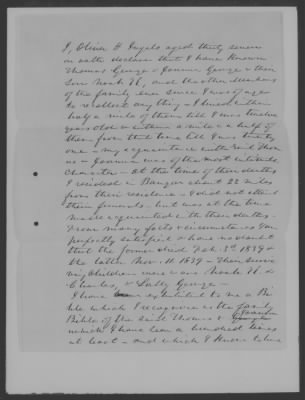 I, Oliver H Ingals aged thirty seven
on oath declare that I have Known
Thomas George & Joanna George & their
Son Noah W, and the other Members
of the family ever since I was of age
to recollect any thing - I lived within
half a mile of them till I was twelve
years old & within a mile & a half of
them from that time till I was twenty
one - my acquaintance with said Thom
as & Joanna was of the most intimate
character - At the time of their deaths
I resided in Bangor about 22 miles
from their residence - I did not attend
their funerals - but was at the time
made acquainted with their deaths -
From many facts & circumstances I am
perfectly satisfied & have no doubt
that the former died Feb. 1st 1839 &
the latter Nov. 11. 1839 - Their survi
ving Children were & are Noah W. &
Charles, & Sally George -
I have been exhibited to me a Bi
ble which I recognize as the family
Bible of the said Thomas & Joanna
which I have seen a hundred times
at least - and which I Know to be